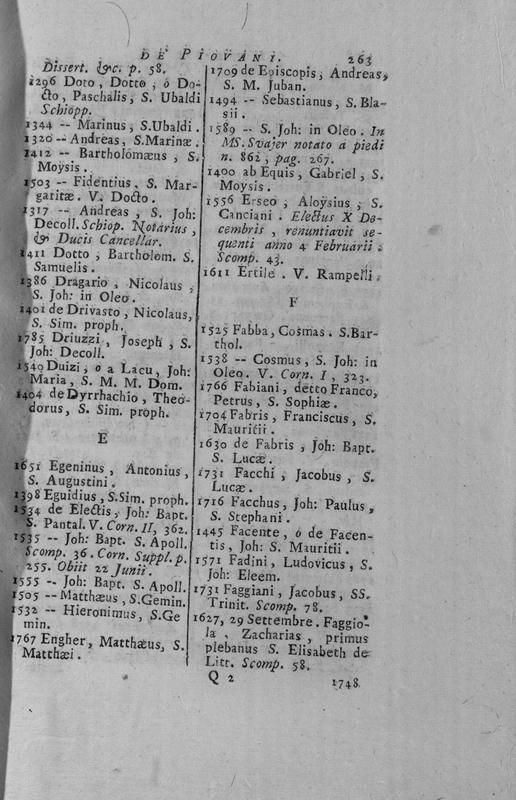 DE' PIOVANI. 263
Dissert. &c. p. 58.
1296 Doto, Dotto, ó Do-
cto, Paschalis, S. Ubaldi
Schiopp.
1344 -- Marinus, S.Ubaldi.
1320 -- Andreas, S.Marinæ.
1412 -- Bartholomæus, S.
Moysis.
1503 -- Fidentius, S. Mar-
garitæ. V. Docto.
1317 -- Andreas, S. Joh:
Decoll. Schiop. Notarius,
& Ducis Cancellar.
1411 Dotto, Bartholom. S.
Samuelis.
1386 Dragario, Nicolaus,
S. Joh: in Oleo.
1401 de Drivasto, Nicolaus,
S. Sim. proph.
1785 Driuzzi, Joseph, S.
Joh: Decoll.
1549 Duizi, o a Lacu, Joh:
Maria, S. M. M. Dom.
1404 de Dyrrhachio, Theo-
dorus, S. Sim. proph.
E
1651 Egeninus, Antonius,
S. Augustini.
1398 Eguidius, S.Sim. proph.
1534 de Electis, Joh: Bapt.
S. Pantal. V. Corn. II, 362.
1535 -- Joh: Bapt. S. Apoll.
Scomp. 36. Corn. Suppl. p.
255. Obiit 22 Junii.
1555 -- Joh: Bapt. S. Apoll.
1505 -- Matthæus, S.Gemin.
1532 -- Hieronimus, S.Ge
min.
1767 Engher, Matthæus, S.
Matthæi.
1709 de Episcopis, Andreas,
S. M. Juban.
1494 -- Sebastianus, S. Bla-
sii.
1589 -- S. Joh: in Oleo. In
MS. Svajer notato a piedi
n. 862, pag. 267.
1400 ab Equis, Gabriel, S.
Moysis.
1556 Erseo, Aloysius, S.
Canciani. Electus X De-
cembris, renuntiavit se-
quenti anno 4 Februarii.
Scomp. 43.
1611 Ertile. V. Rampelli.
F
1525 Fabba, Cosmas. S.Bar-
thol.
1538 -- Cosmus, S. Joh: in
Oleo. V. Corn. I, 323.
1766 Fabiani, detto Franco,
Petrus, S. Sophiæ.
1704 Fabris, Franciscus, S.
Mauritii.
1630 de Fabris, Joh: Bapt.
S. Lucæ.
1731 Facchi, Jacobus, S.
Lucæ.
1716 Facchus, Joh: Paulus,
S. Stephani.
1445 Facente, ó de Facen-
tis, Joh: S. Mauritii.
1571 Fadini, Ludovicus, S.
Joh: Eleem.
1731 Faggiani, Jacobus, SS.
Trinit. Scomp. 78.
1627, 29 Settembre. Faggio-
la, Zacharias, primus
plebanus S. Elisabeth de
Litt. Scomp. 58.
Q 2 1748